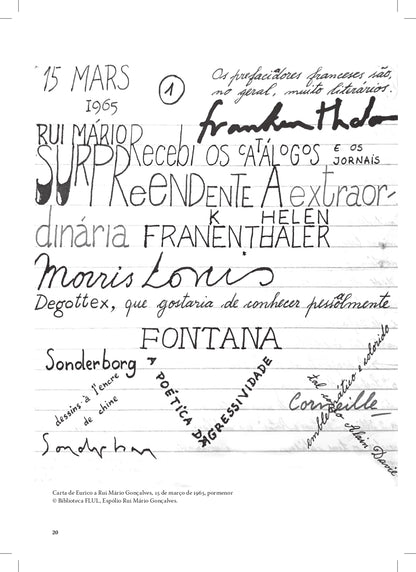 15 MARS
1965
1
Os prefaciadores franceses são,
no geral, muito literários.
frankenthaler
RUI MÁRIO
Recebi OS CATÁLOGOS E OS
JORNAIS
SURPREENDENTE A extraor-
dinária K HELEN
FRANENTHALER
Morris Louis
Degottex, que gostaria de conhecer pessoalmente
FONTANA
Sonderborg
dessins à l'encre
de chine
Sonderborg
A POÉTICA DA
AGRESSIVIDADE
Corneille
emblemático e colorido
tal como Alain Davie
Carta de Eurico a Rui Mário Gonçalves, 15 de março de 1965, pormenor
© Biblioteca FLUL, Espólio Rui Mário Gonçalves.
20